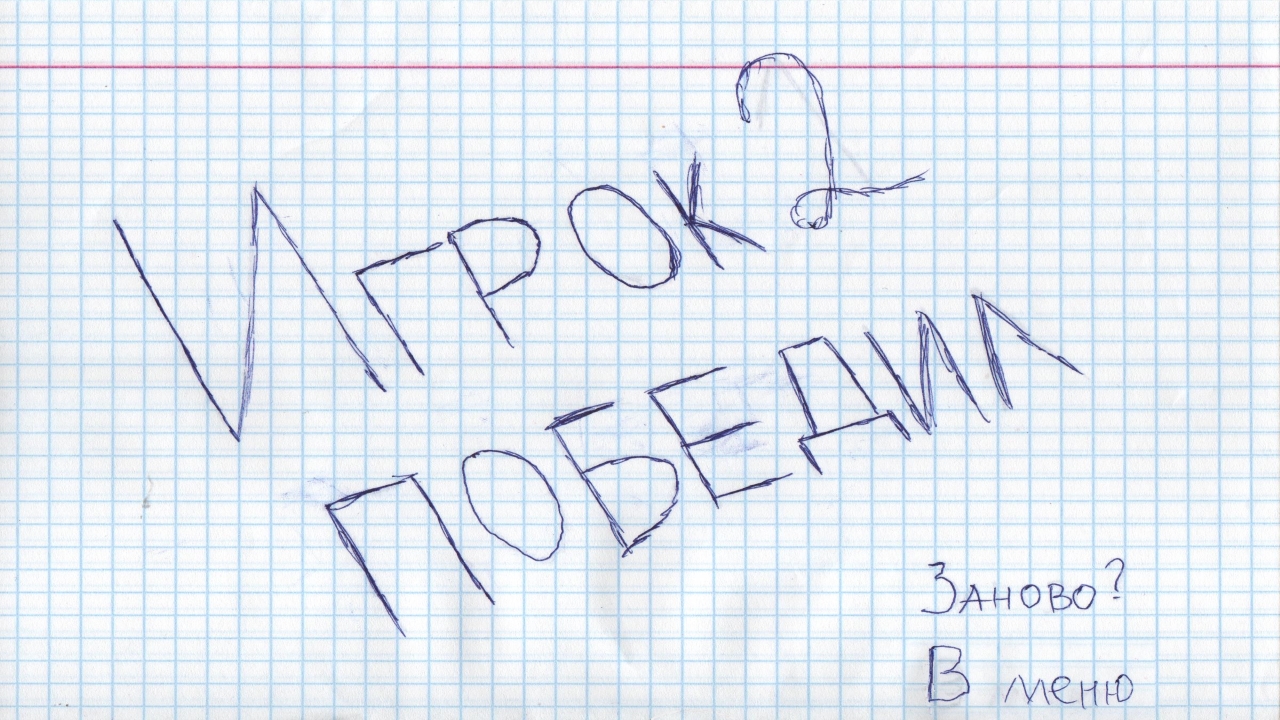 Игрок 2
ПОБЕДИЛ
Заново?
В меню